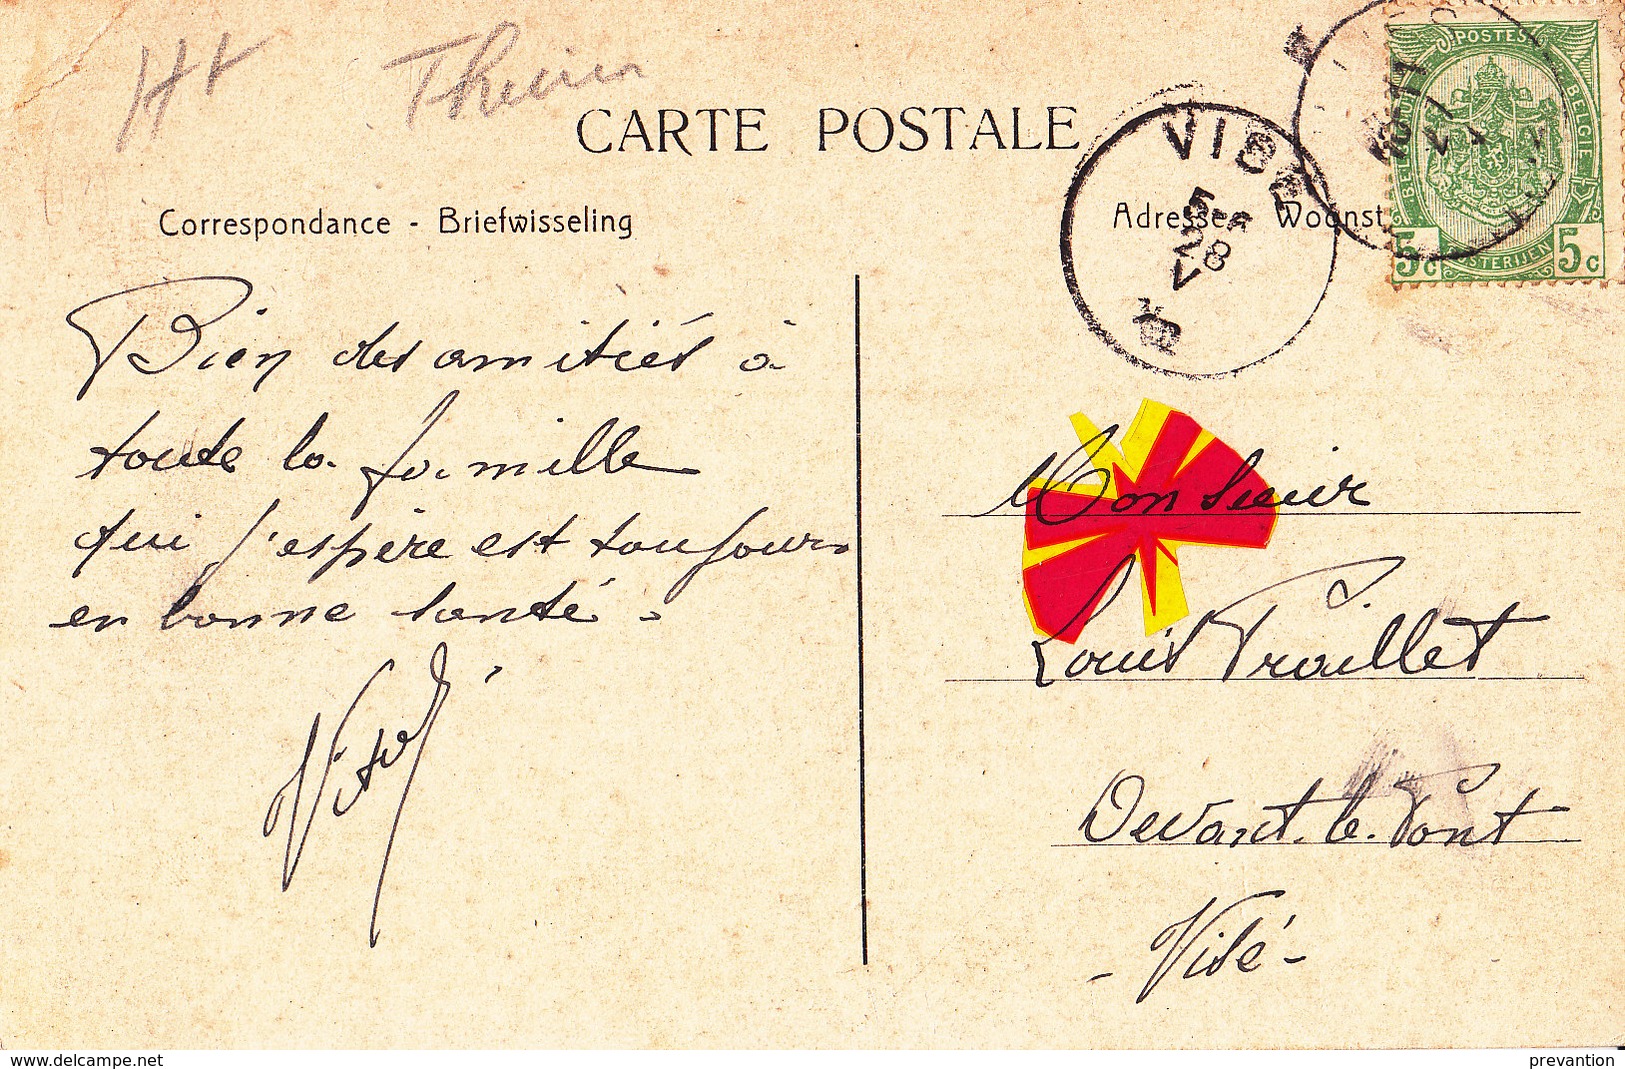 Ht Thuin
CARTE POSTALE
Correspondance - Briefwisseling
Adresse Woonst
VISÉ
5
28
V
11
27
V
POSTES
BELGIE
5c 5c
Bien des amitiés à
toute la famille
qui j'espère est toujours
en bonne santé.
Monsieur
Louis Traillet
Devant-le-Pont
- Visé -
www.delcampe.net
prevantion